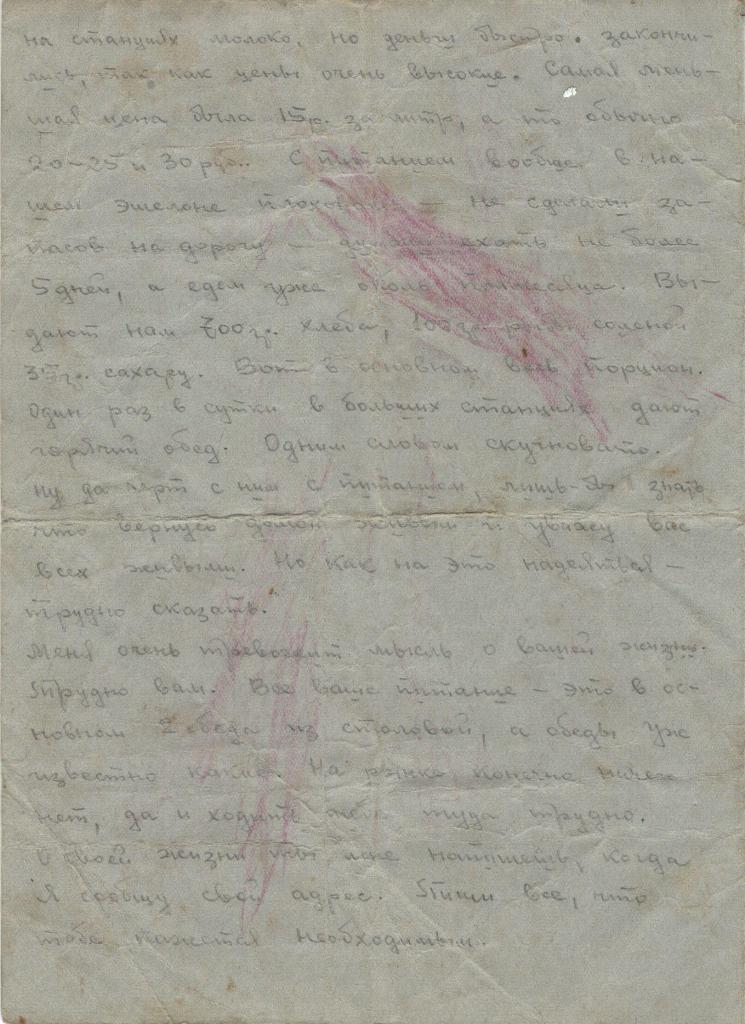 на станциях молоко, но деньги быстро. закончи-
лись, так как цены очень высокие. Самая мень-
шая цена была 15р. за литр, а то обычно
20-25 и 30 руб.. С питанием вообще в на-
шем эшелоне — не сделали за-
пасов на дорогу — думали ехать не более
5 дней, а едем уже около полмесяца. Вы-
дают нам 700 гр. хлеба, 100 гр. рыбы соленой
гр. сахару. Вот в основном весь порцион.
Один раз в сутки в больших станциях дают
горячий обед. Одним словом скучновато.
ну да черт с ним с питанием, лишь-бы знать
что вернусь домой живым и увижу вас
всех живыми. Но как на это надеяться —
трудно сказать.
Меня очень тревожит мысль о вашей жизни.
Трудно вам. Все ваше питание — это в ос-
новном 2 обеда из столовой, а обеды уж
известно какие. На рынке конечно ничего
нет, да и ходить туда трудно.
О своей жизни ты мне напишешь, когда
Я сообщу свой адрес. Пиши все, что
тебе кажется необходимым.